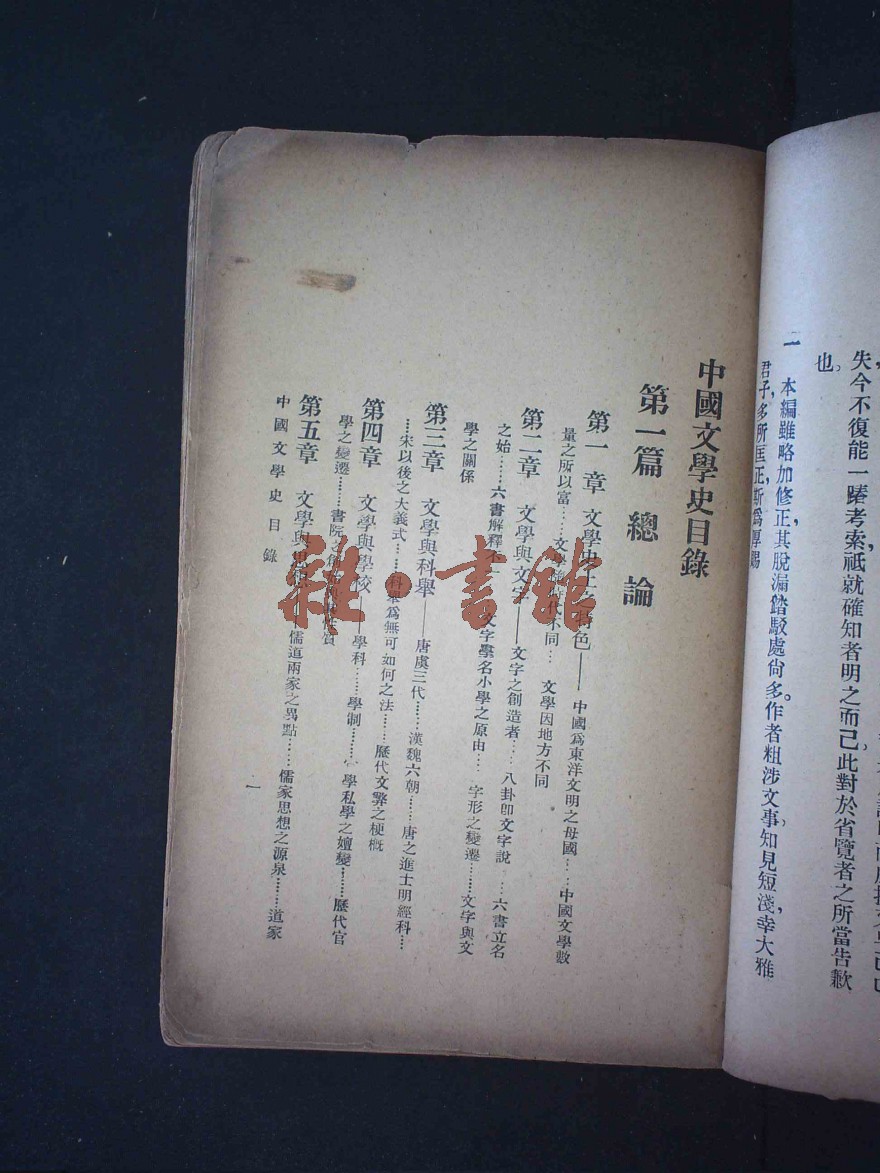 失今不復能一臻考索祇就確知者明之而已此對於省覽者之所當告歉
也。
一 本編雖略加修正其脫漏踳駁處尙多作者粗涉文事知見短淺幸大雅
君子多所匡正斯爲厚賜
中國文學史目錄
第一篇 總論
第一章 文學史上之特色——中國爲東洋文明之母國……中國文學數
量之所以富……文學因時代不同……文學因地方不同
第二章 文學與文字——文字之創造者……八卦卽文字說……六書立名
之始……六書解釋不一……文字學名小學之原由……字形之變遷……文字與文
學之關係
第三章 文學與科舉——唐虞三代……漢魏六朝……唐之進士明經科……
……宋以後之大義式……科舉爲無可如何之法……歷代文弊之梗概
第四章 文學與學校——學科……學制……學私學之嬗變……歷代官
學之變遷……書院之
第五章 文學與思想——儒道兩家之異點……儒家思想之源泉……道家
中國文學史目錄
一
雜·書館